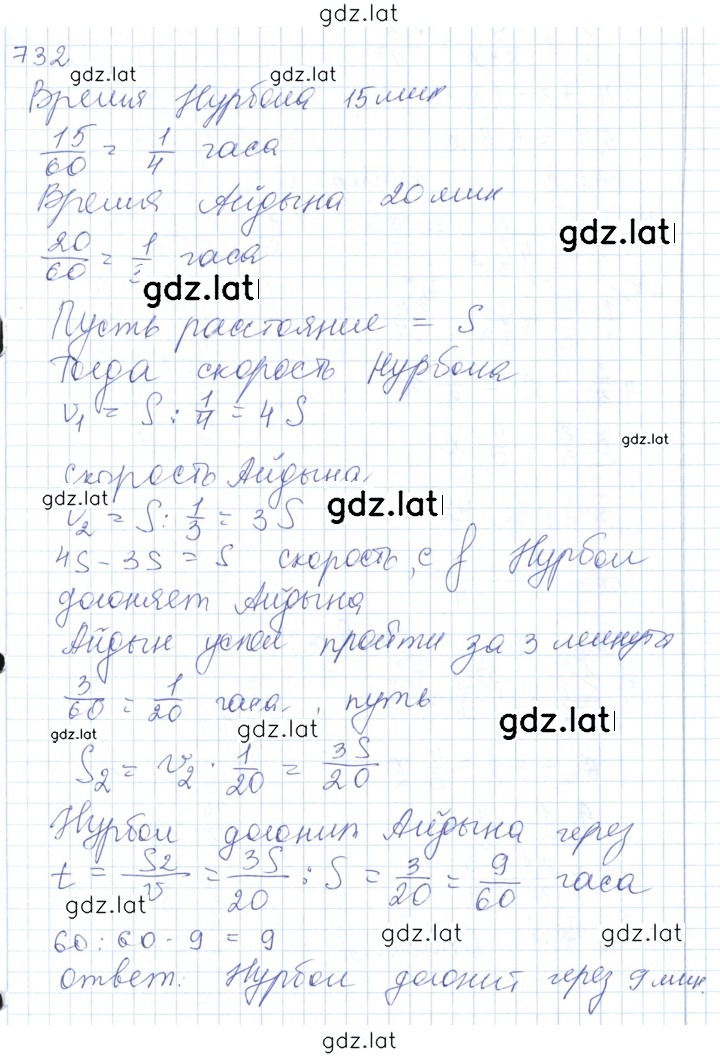 gdz.lat
732
gdz.lat gdz.lat
Время Нурбола 15 мин
15/60 = 1/4 часа
Время Айдына 20 мин
gdz.lat
20/60 = 1/ часа
gdz.lat
Пусть расстояние = S
Тогда скорость Нурбола
v₁ = S : 1/4 = 4 S
gdz.lat
скорость Айдына
gdz.lat gdz.lat
v₂ = S : 1/3 = 3 S
4S - 3S = S скорость, с Нурбол
догоняет Айдына
Айдын успел пройти за 3 минуты
3/60 = 1/20 часа, путь
gdz.lat gdz.lat gdz.lat
S₂ = v₂ · 1/20 = 3S/20
Нурбол догонит Айдына через
t = S₂/v = 3S/20 : S = 3/20 = 9/60 часа
gdz.lat
60 : 60 · 9 = 9
gdz.lat gdz.lat
ответ: Нурбол догонит через 9 мин.
gdz.lat